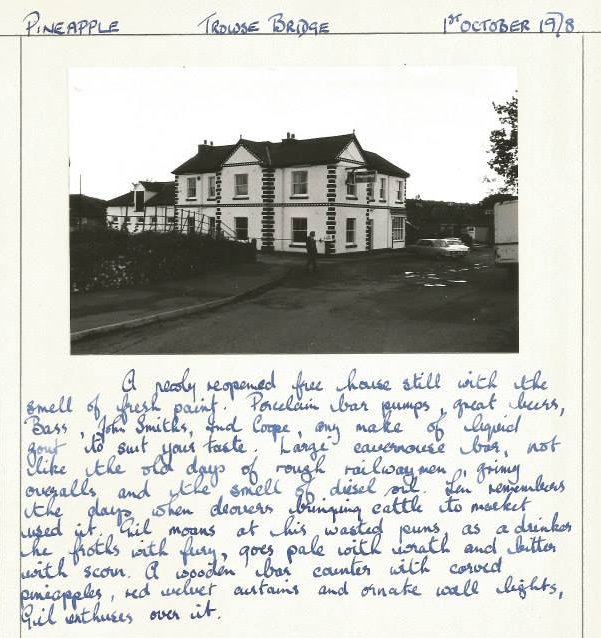 PINEAPPLE TROWSE BRIDGE 1ST OCTOBER 1978
A newly reopened free house still with the
smell of fresh paint. Porcelain bar pumps, great beers,
Bass, John Smiths, Ind Coope, any make of liquid
gout to suit your taste. Large cavernouse bar, not
like the old days of rough railwaymen, grimy
overalls and the smell of diesel oil. Len remembers
the days when drovers bringing cattle to market
used it. Gil moans at his wasted puns, as a drinker
he froths with fury, goes pale with wrath and bitter
with scorn. A wooden bar counter with carved
pineapples, red velvet curtains and ornate wall lights,
Gil enthuses over it.